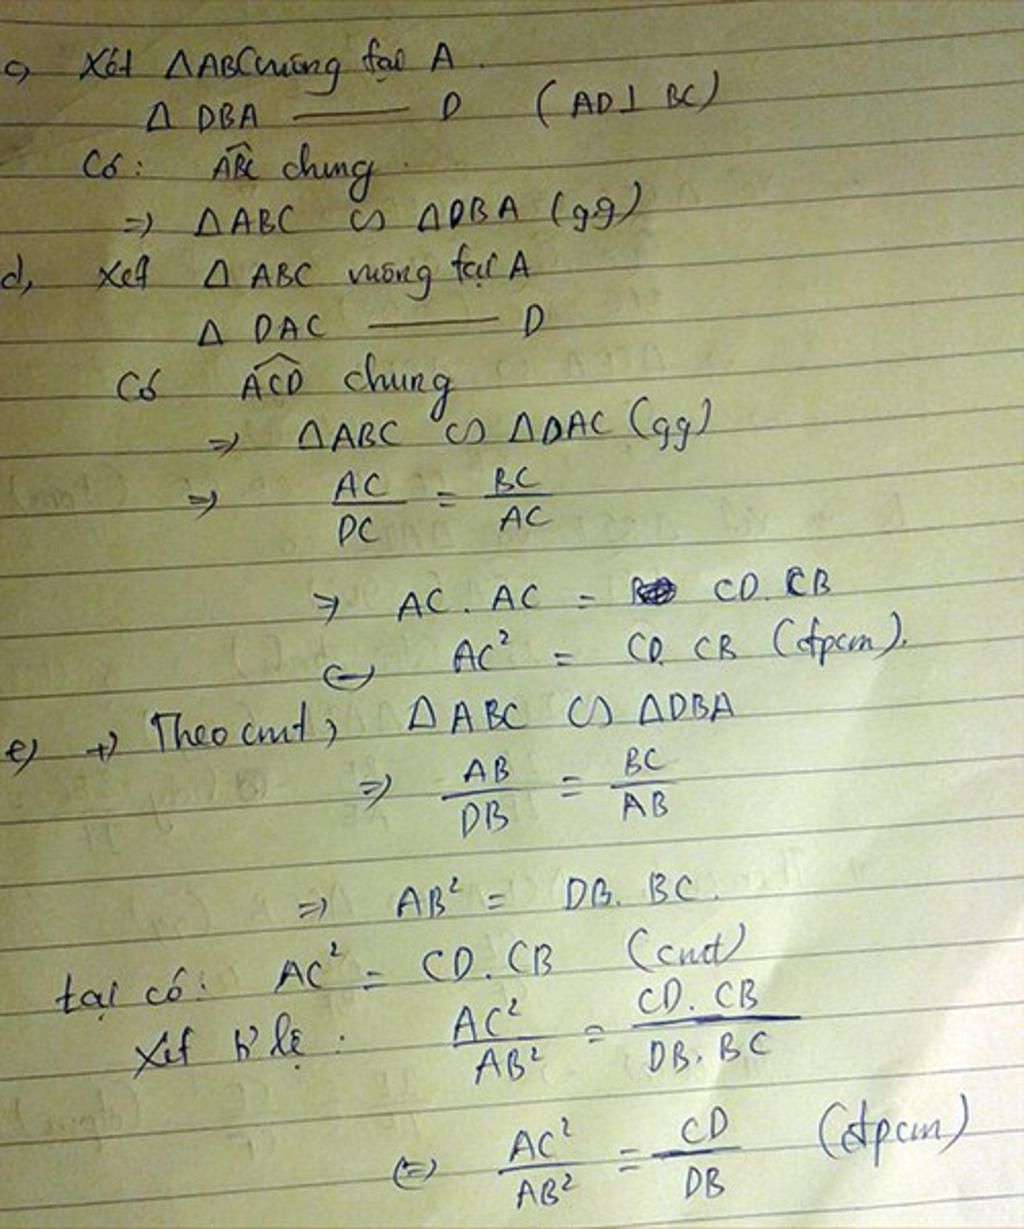 c, Xét ΔABC vuông tại A.
Δ DBA —— D (AD⊥ BC)
Có: \widehat{ABC} chung
=> ΔABC ∽ ΔDBA (gg)
d, Xét Δ ABC vuông tại A
Δ DAC —— D
Có \widehat{ACD} chung
=> ΔABC ∽ ΔDAC (gg)
=> AC/DC = BC/AC
=> AC. AC = CD. CB
(=) AC² = CD. CB (đpcm).
e) +) Theo cmt, ΔABC ∽ ΔDBA
=> AB/DB = BC/AB
=> AB² = DB. BC.
tại có: AC² = CD. CB (cmt)
Xét tỉ lệ: AC²/AB² = CD. CB/DB. BC
(=) AC²/AB² = CD/DB (đpcm)